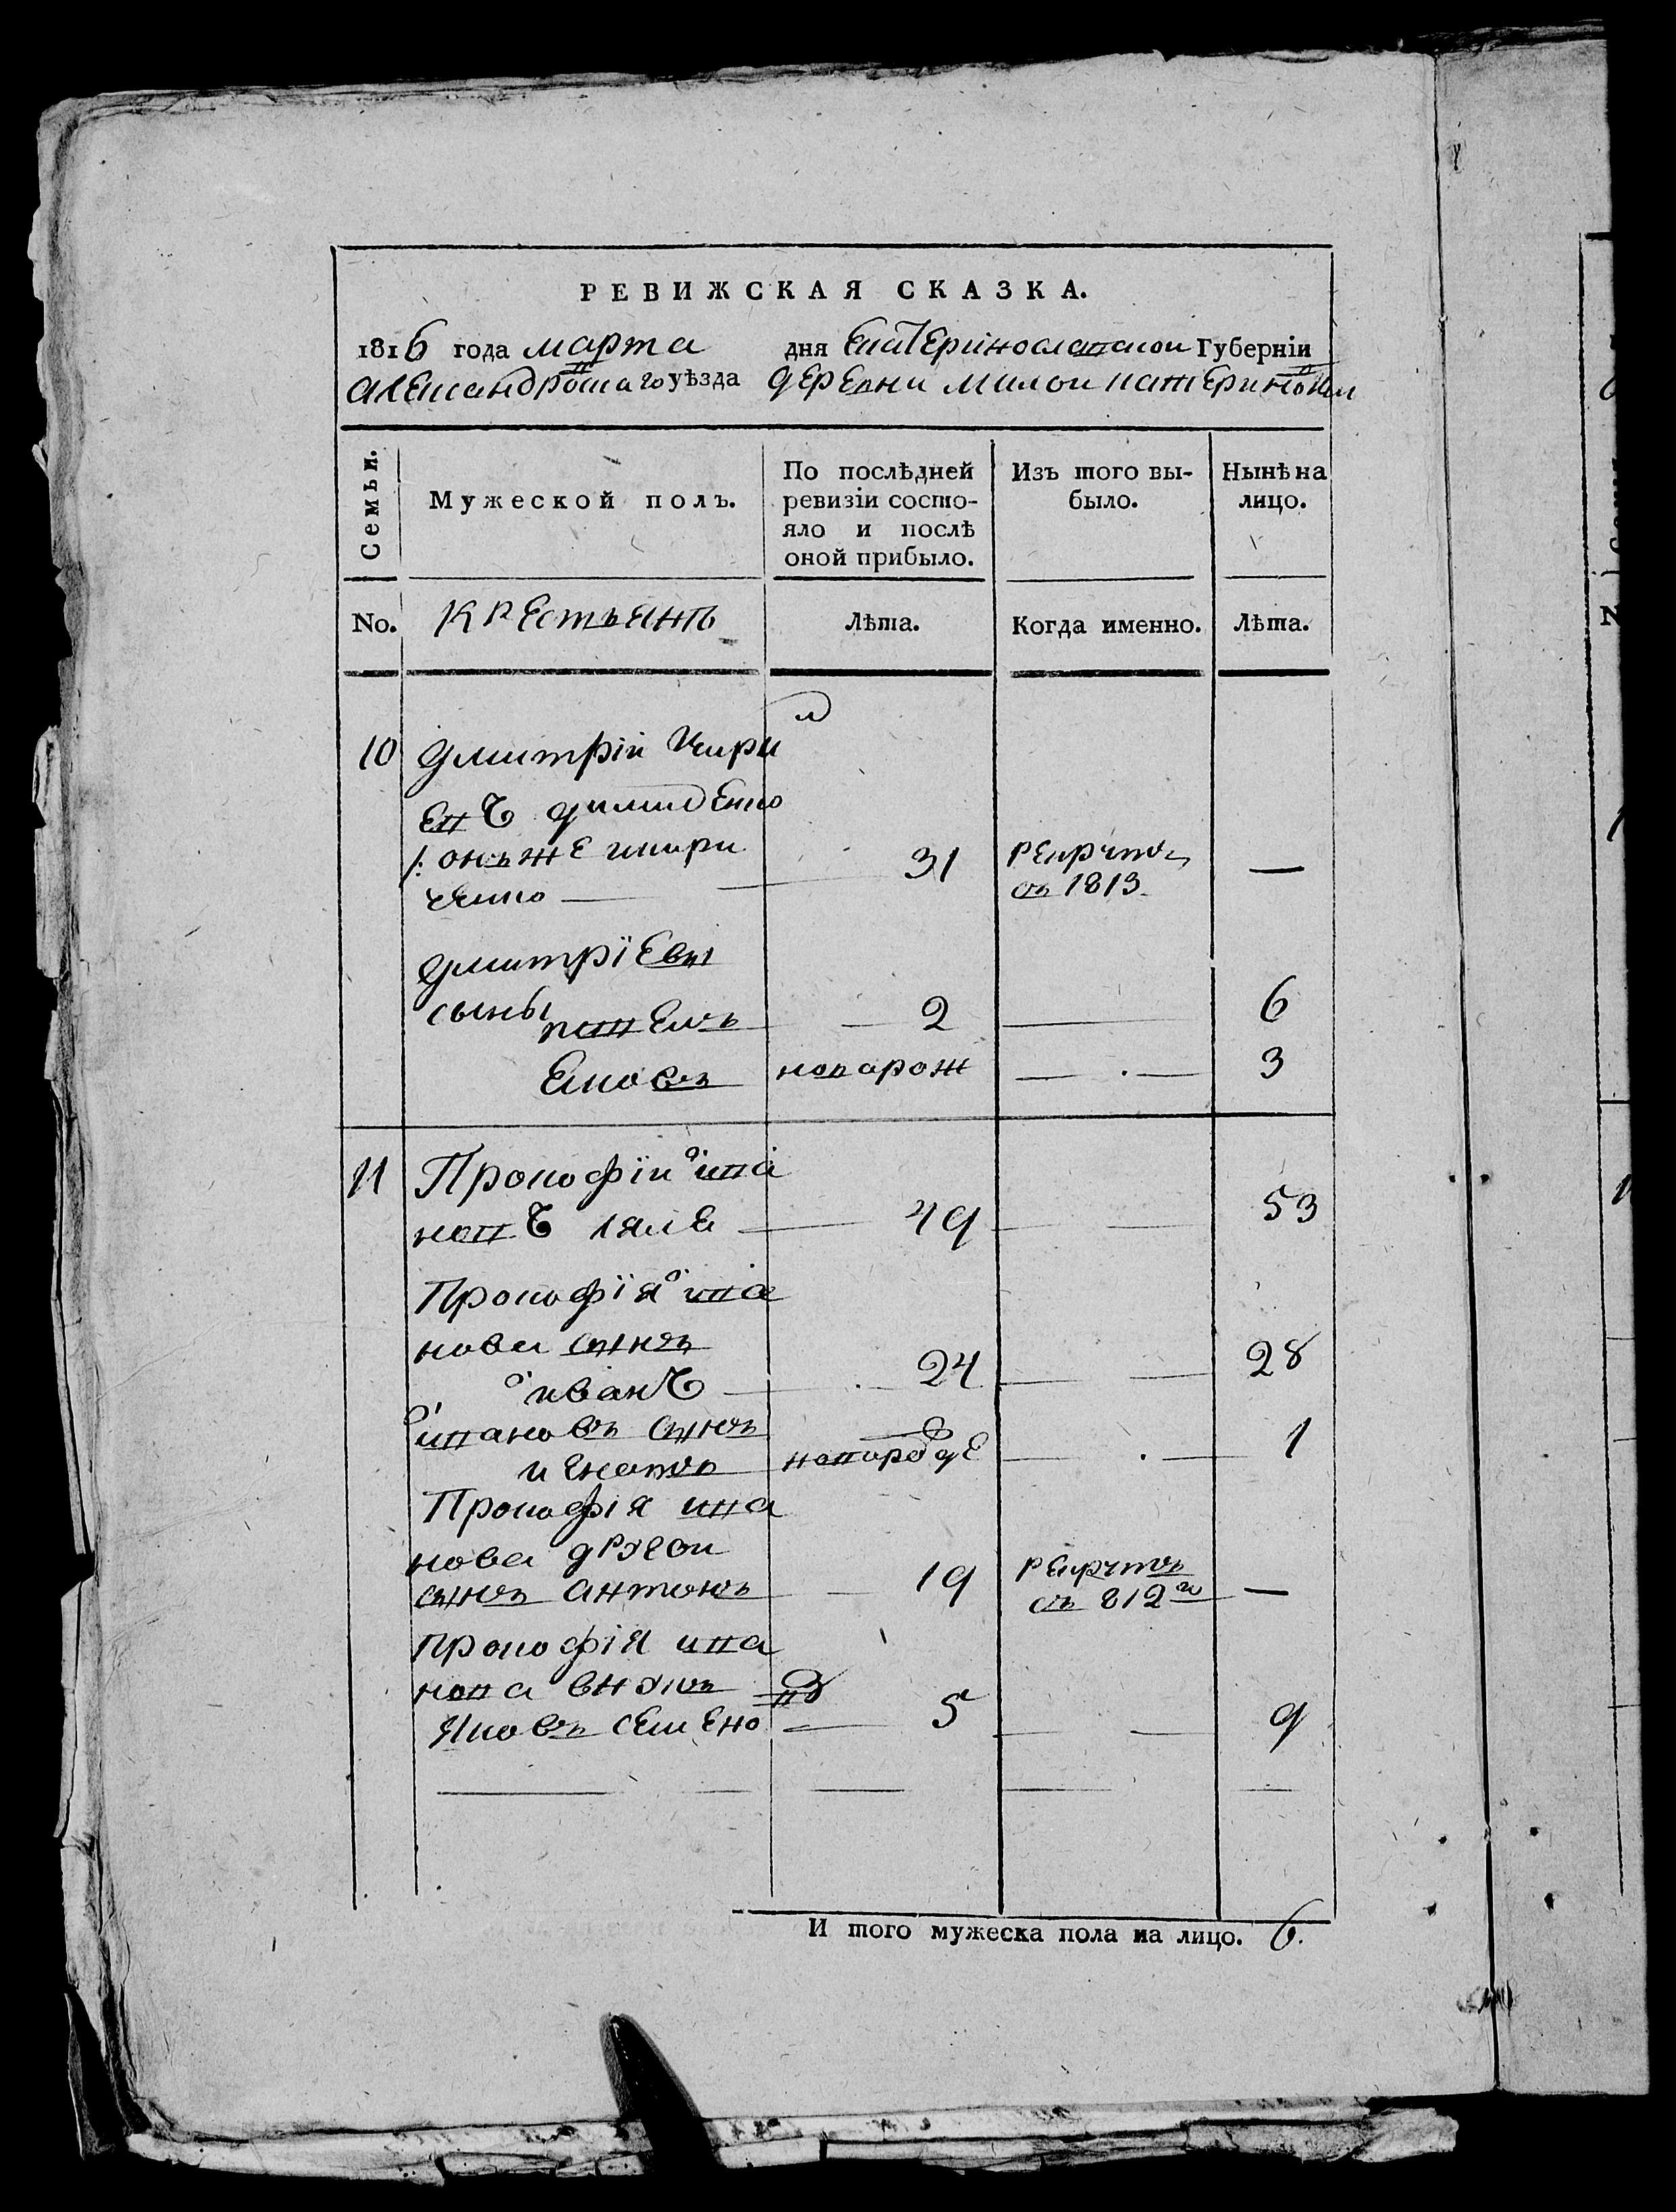 РЕВИЖСКАЯ СКАЗКА.
1816 года марта дня Екатеринославской Губерніи
Александровскаго уѣзда деревни милой катериновки
Семьи.
Мужеской полъ.
По послѣдней
ревизіи состо-
яло и послѣ
оной прибыло.
Изъ того вы-
было.
Нынѣ на
лицо.
No. крестьянъ Лѣта. Когда именно. Лѣта.
10 дмитрій кири
евъ
/: онъ же кири
ченко — 31 рекрутъ — 
въ 1813.
дмитріевы
сыны
павелъ — 2 — 6
новарож — . — 3
11 Прокофій ива
новъ ляле — 49 — 53
Прокофія ива
нова сынъ
иванъ — 24 — 28
ивановъ сынъ
игнатъ новорожде — . — 1
Прокофія ива
нова другой
сынъ антонъ — 19 рекрутъ —
въ 812го
прокофія ива
нова внукъ
яковъ семено — 5 — 9
И того мужеска пола на лицо. 6.